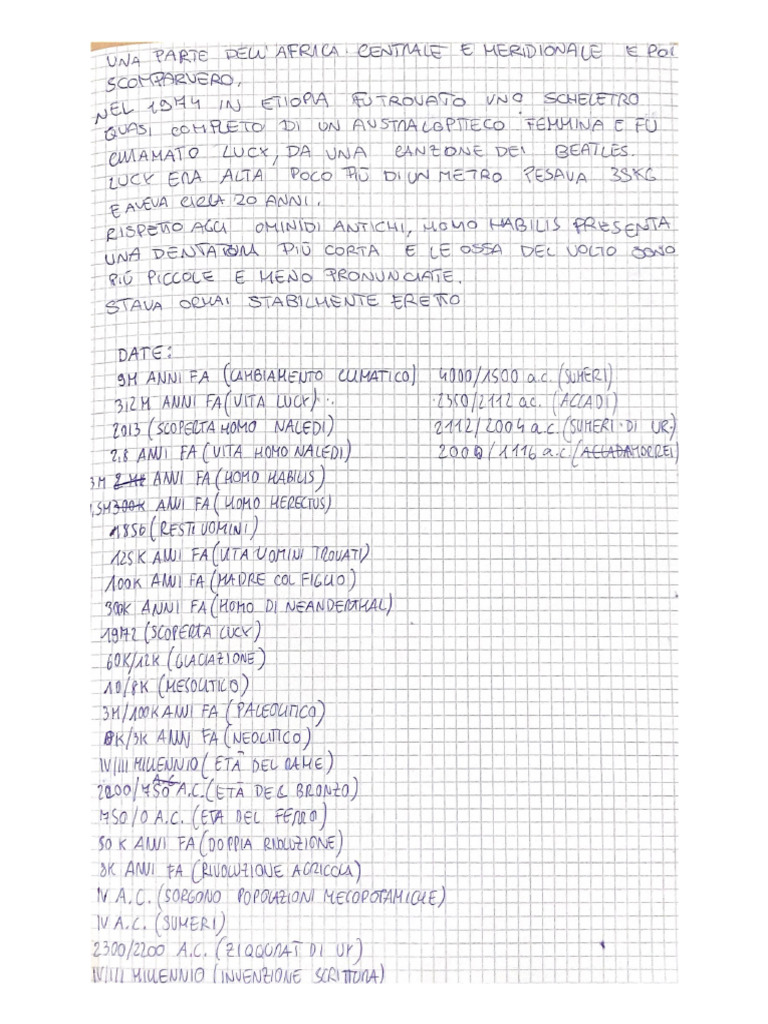 UNA PARTE DELL'AFRICA CENTRALE E MERIDIONALE E POI
SCOMPARVERO.
NEL 1974 IN ETIOPIA FU TROVATO UNO SCHELETRO
QUASI COMPLETO DI UN AUSTRALOPITECO FEMMINA E FÙ
CHIAMATO LUCY, DA UNA CANZONE DEI BEATLES.
LUCY ERA ALTA POCO PIÙ DI UN METRO PESAVA 38KG
E AVEVA CIRCA 20 ANNI.
RISPETTO AGLI OMINIDI ANTICHI, HOMO HABILIS PRESENTA
UNA DENTATURA PIÙ CORTA E LE OSSA DEL VOLTO SONO
PIÙ PICCOLE E MENO PRONUNCIATE.
STAVA ORMAI STABILMENTE ERETTO
DATE:
9M ANNI FA (CAMBIAMENTO CLIMATICO)
3,2M ANNI FA (VITA LUCY)
2013 (SCOPERTA HOMO NALEDI)
2,8 ANNI FA (VITA HOMO NALEDI)
3M ANNI FA (HOMO HABILIS)
1,5M 300K ANNI FA (HOMO HERECTUS)
1856 (RESTI UOMINI)
125K ANNI FA (VITA UOMINI TROVATI)
100K ANNI FA (MADRE COL FIGLIO)
300K ANNI FA (HOMO DI NEANDERTHAL)
1972 (SCOPERTA LUCY)
60K/12K (GLACIAZIONE)
10/8K (MESOLITICO)
3M/100K ANNI FA (PALEOLITICO)
8K/3K ANNI FA (NEOLITICO)
IV/III MILLENNIO (ETÀ DEL RAME)
2000/750 A.C. (ETÀ DEL BRONZO)
750/0 A.C. (ETÀ DEL FERRO)
50K ANNI FA (DOPPIA RIVOLUZIONE)
8K ANNI FA (RIVOLUZIONE AGRICOLA)
IV A.C. (SORGONO POPOLAZIONI MESOPOTAMICHE)
IV A.C. (SUMERI)
2300/2200 A.C. (ZIQQURAT DI UR)
IV/III MILLENNIO (INVENZIONE SCRITTURA)
4000/1500 a.c. (SUMERI)
2350/2112 a.c. (ACCADI)
2112/2004 a.c. (SUMERI DI UR)
2006/1116 a.c. (AMORREI)